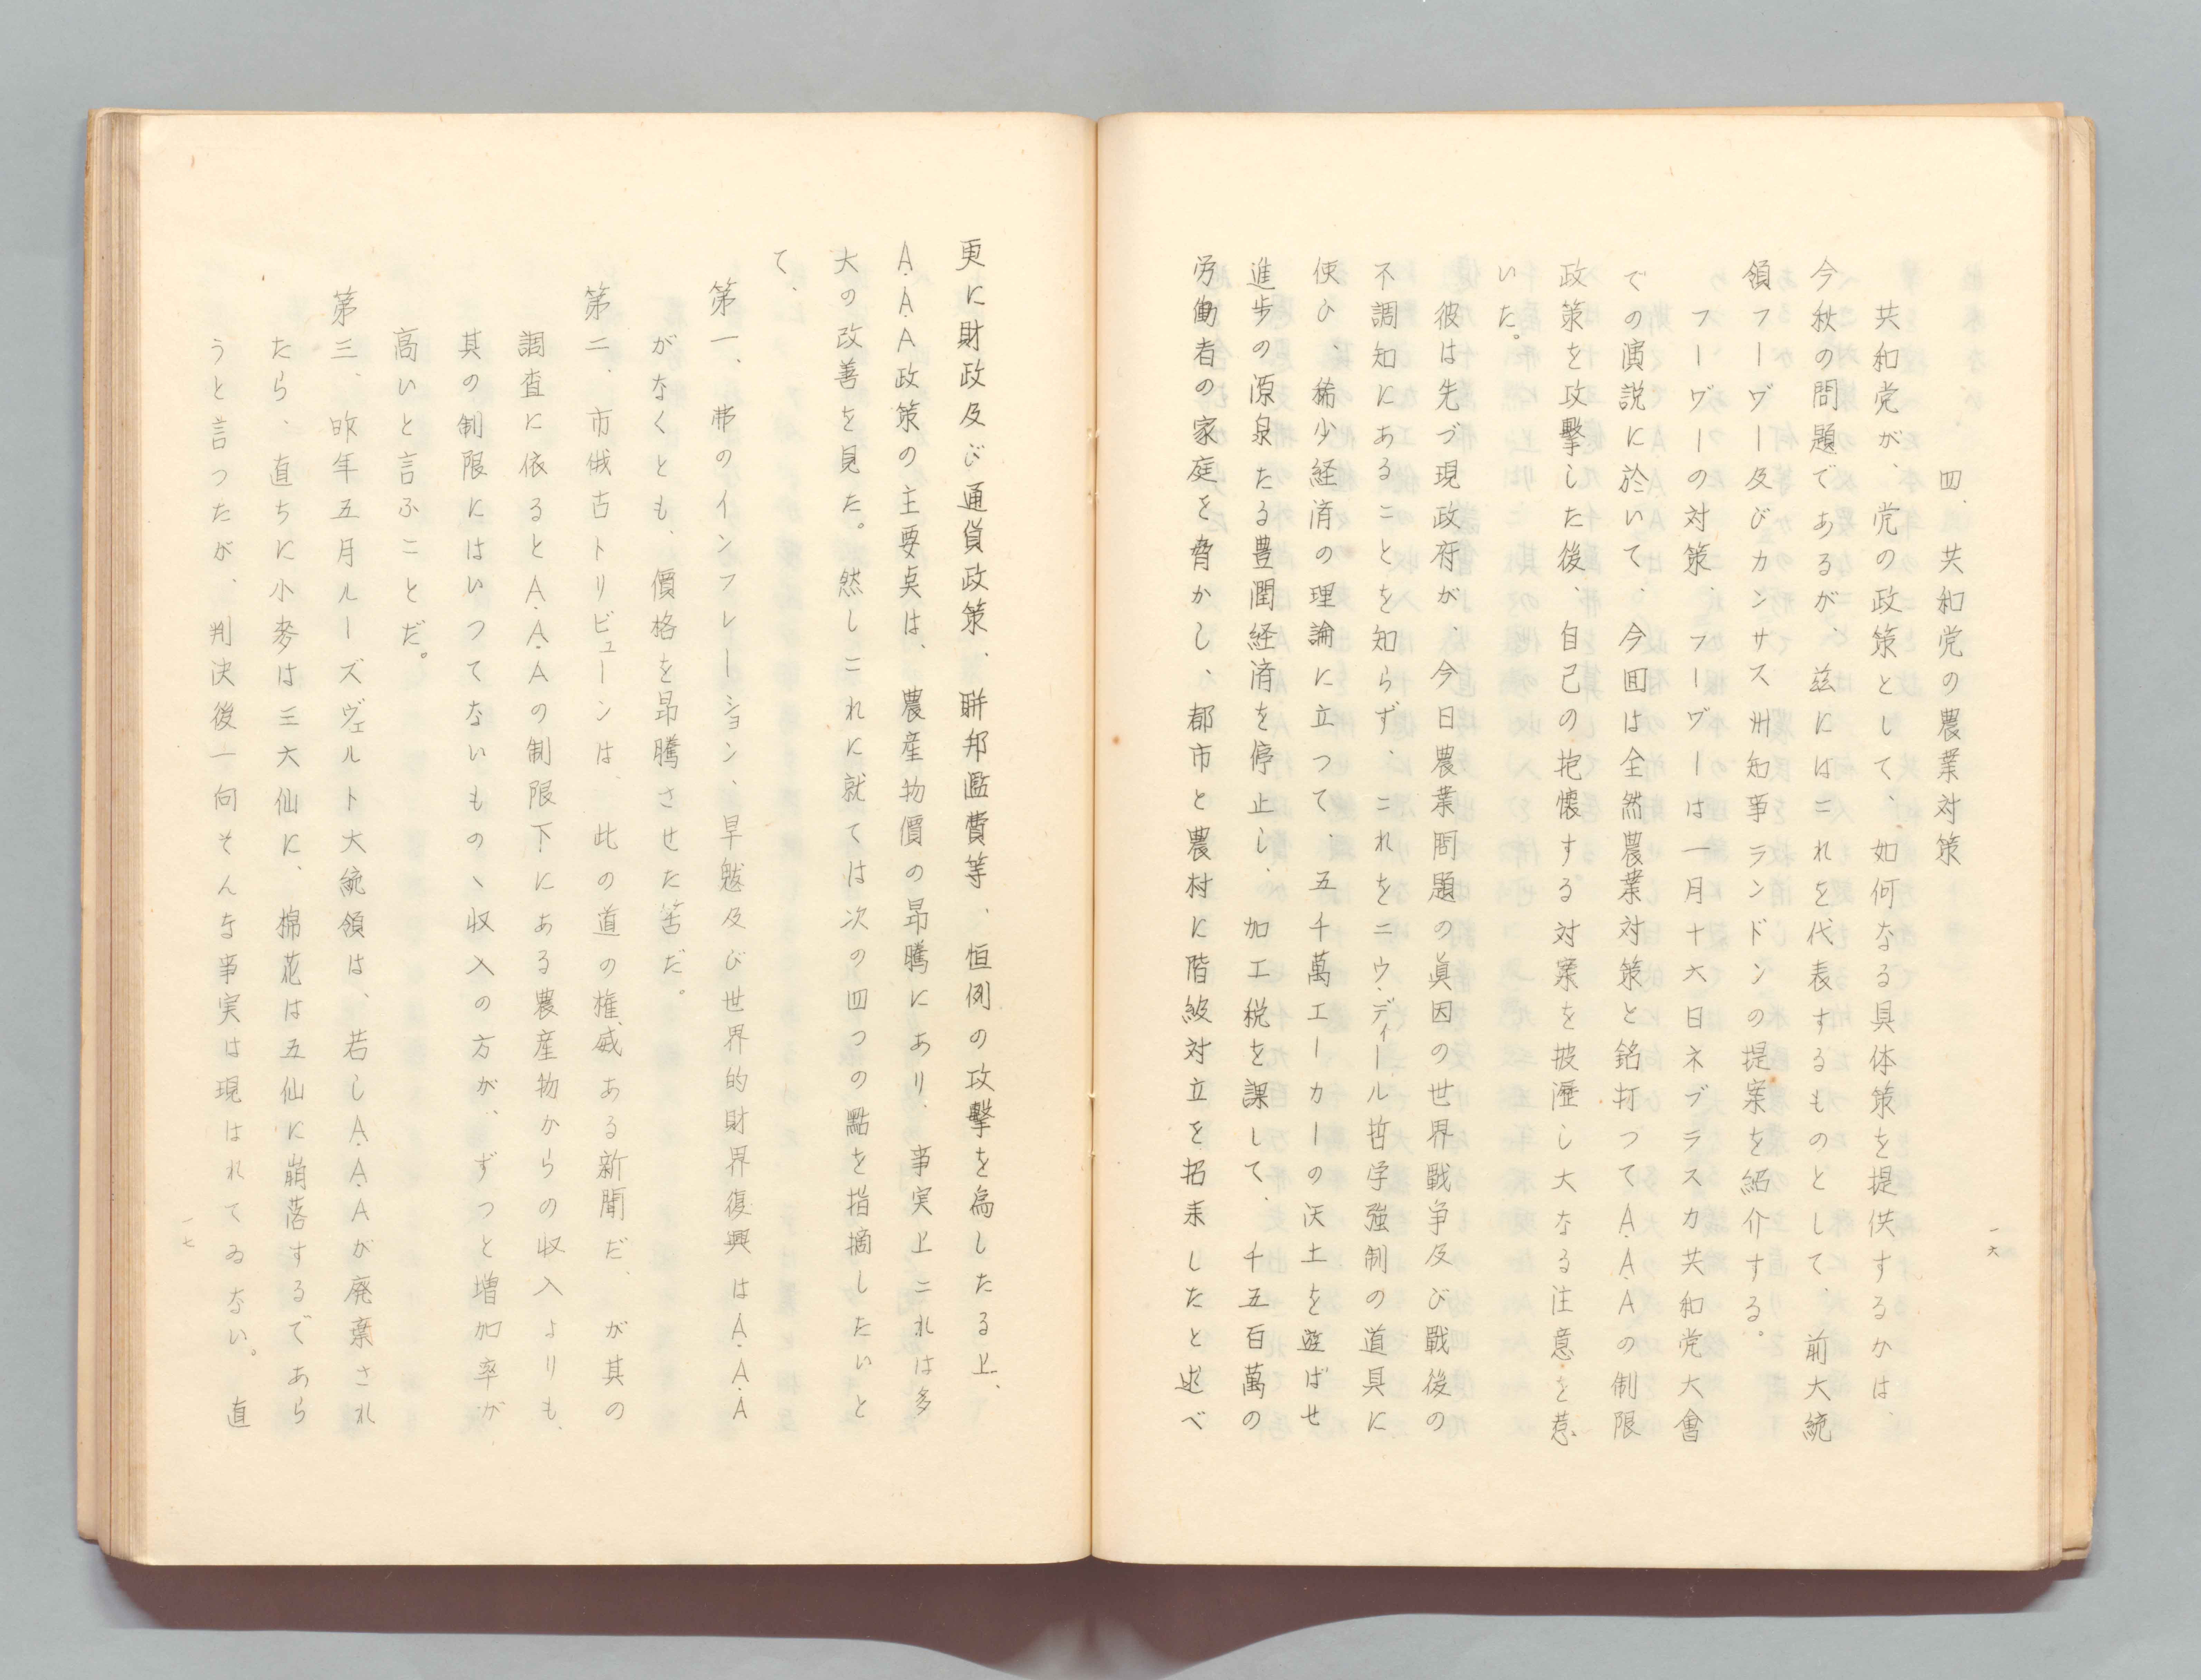 一六
四、共和党の農業対策
共和党が、党の政策として、如何なる具体策を提供するかは、
今秋の問題であるが、茲にはこれを代表するものとして、前大統
領フーヴー及びカンサス州知事ランドンの提案を紹介する。
フーヴーの対策、フーヴーは一月十六日ネブラスカ共和党大會
での演説に於いて、今回は全然農業対策と銘打つてA.A.Aの制限
政策を攻撃した後、自己の抱懐する対案を披瀝し大なる注意を惹
いた。
彼は先づ現政府が、今日農業問題の眞因の世界戦争及び戦後の
不調和にあることを知らず、これをニウ・ディール哲学強制の道具に
使ひ、稀少経済の理論に立つて、五千萬エーカーの沃土を遊ばせ
進歩の源泉たる豊潤経済を停止し、加工税を課して、千五百萬の
労働者の家庭を脅かし、都市と農村に階級対立を招来したと述べ
更に財政及び通貨政策、聯邦濫費等、恒例の攻撃を為したる上、
A.A.A政策の主要点は、農産物價の昂騰にあり、事実上これは多
大の改善を見た。然しこれに就ては次の四つの點を指摘したいと
て、
第一、弗のインフレーション、旱魃及び世界的財界復興はA.A.A
がなくとも、價格を昂騰させた筈だ。
第二、市俄古トリビューンは、此の道の権威ある新聞だ、が其の
調査に依るとA.A.Aの制限下にある農産物からの収入よりも、
其の制限にはいつてないものゝ収入の方が、ずつと増加率が
高いと言ふことだ。
第三、昨年五月ルーズヴェルト大統領は、若しA.A.Aが廃棄され
たら、直ちに小麥は三六仙に、棉花は五仙に崩落するであら
うと言つたが、判決後一向そんな事実は現はれてゐない。直
一七